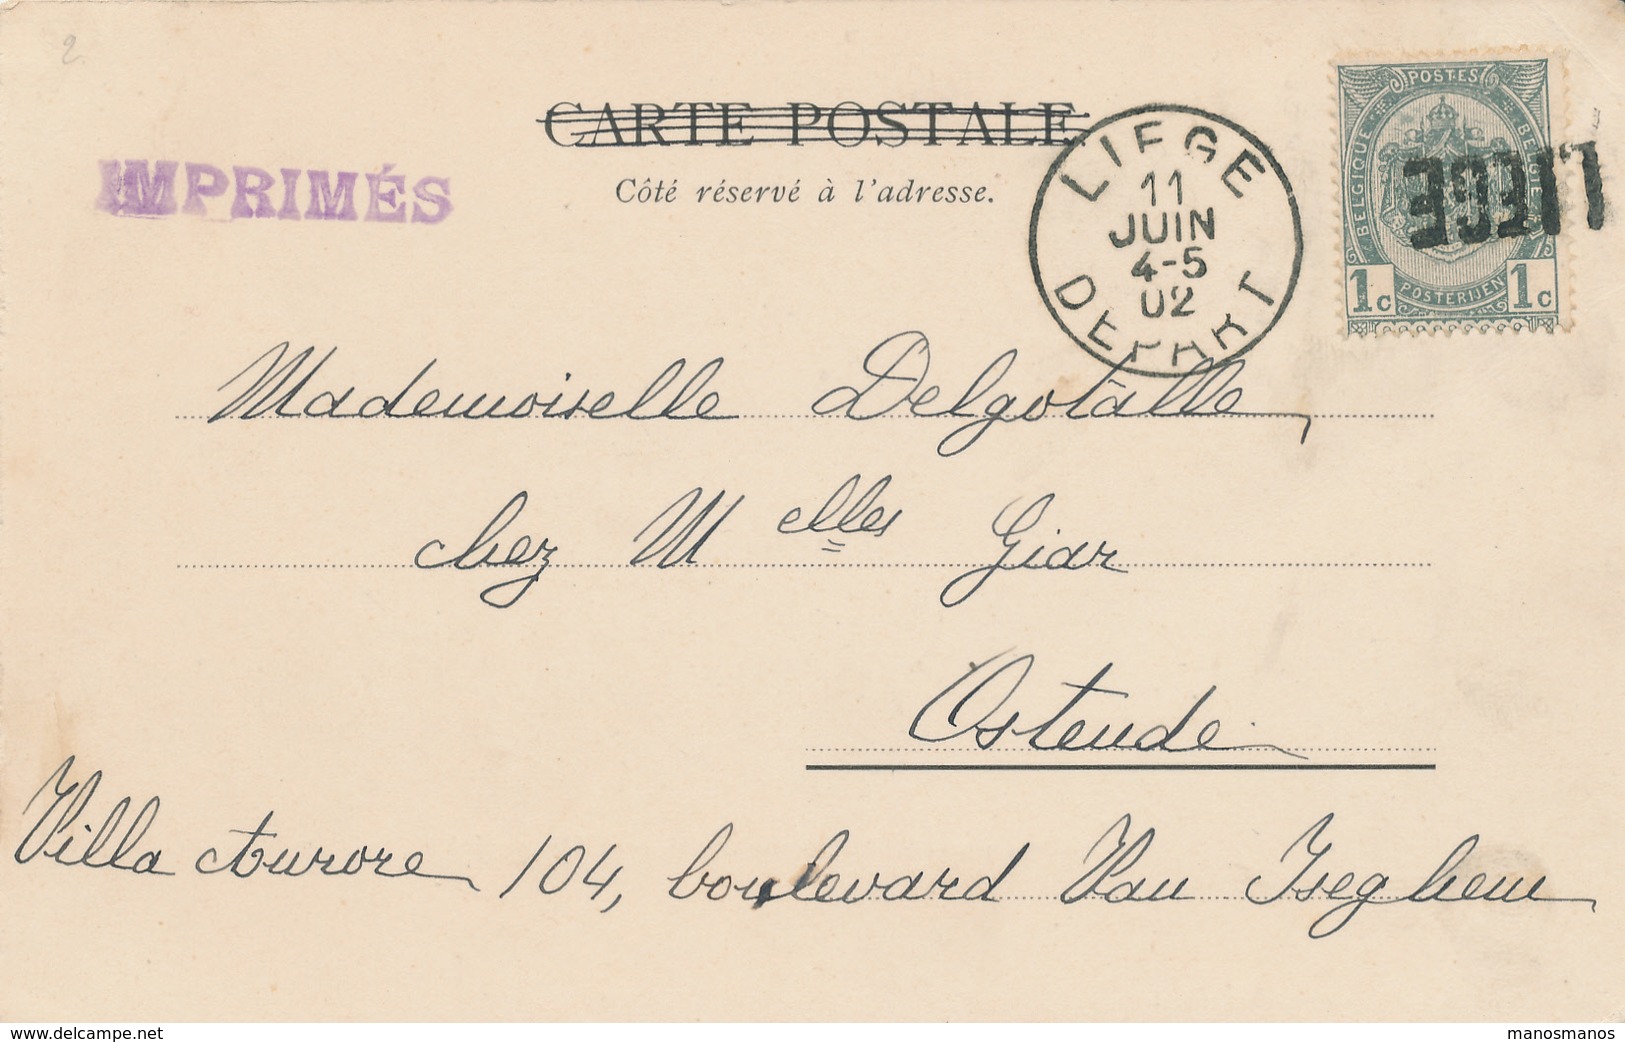 2
CARTE POSTALE
IMPRIMÉS
Côté réservé à l'adresse.
LIEGE
11
JUIN
4-5
02
DEPART
POSTES
BELGIQUE
BELGIE
POSTERIJEN
1c 1c
LIEGE
Mademoiselle Delgotalle,
chez Melles Giar
Ostende
Villa Aurore, 104, boulevard Van Iseghem
delcampe.net
manosmanos